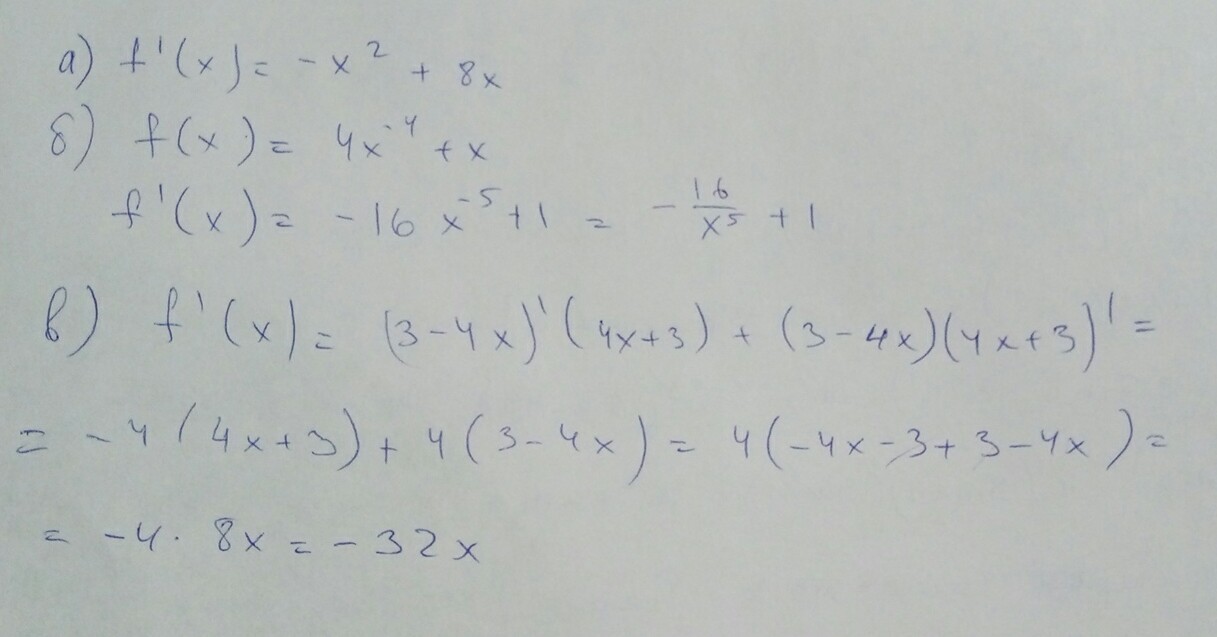 а) f'(x) = -x² + 8x
б) f(x) = 4x⁻⁴ + x
f'(x) = -16x⁻⁵ + 1 = -16/x⁵ + 1
в) f'(x) = (3-4x)'(4x+3) + (3-4x)(4x+3)' =
= -4(4x+3) + 4(3-4x) = 4(-4x-3+3-4x) =
= -4 · 8x = -32x